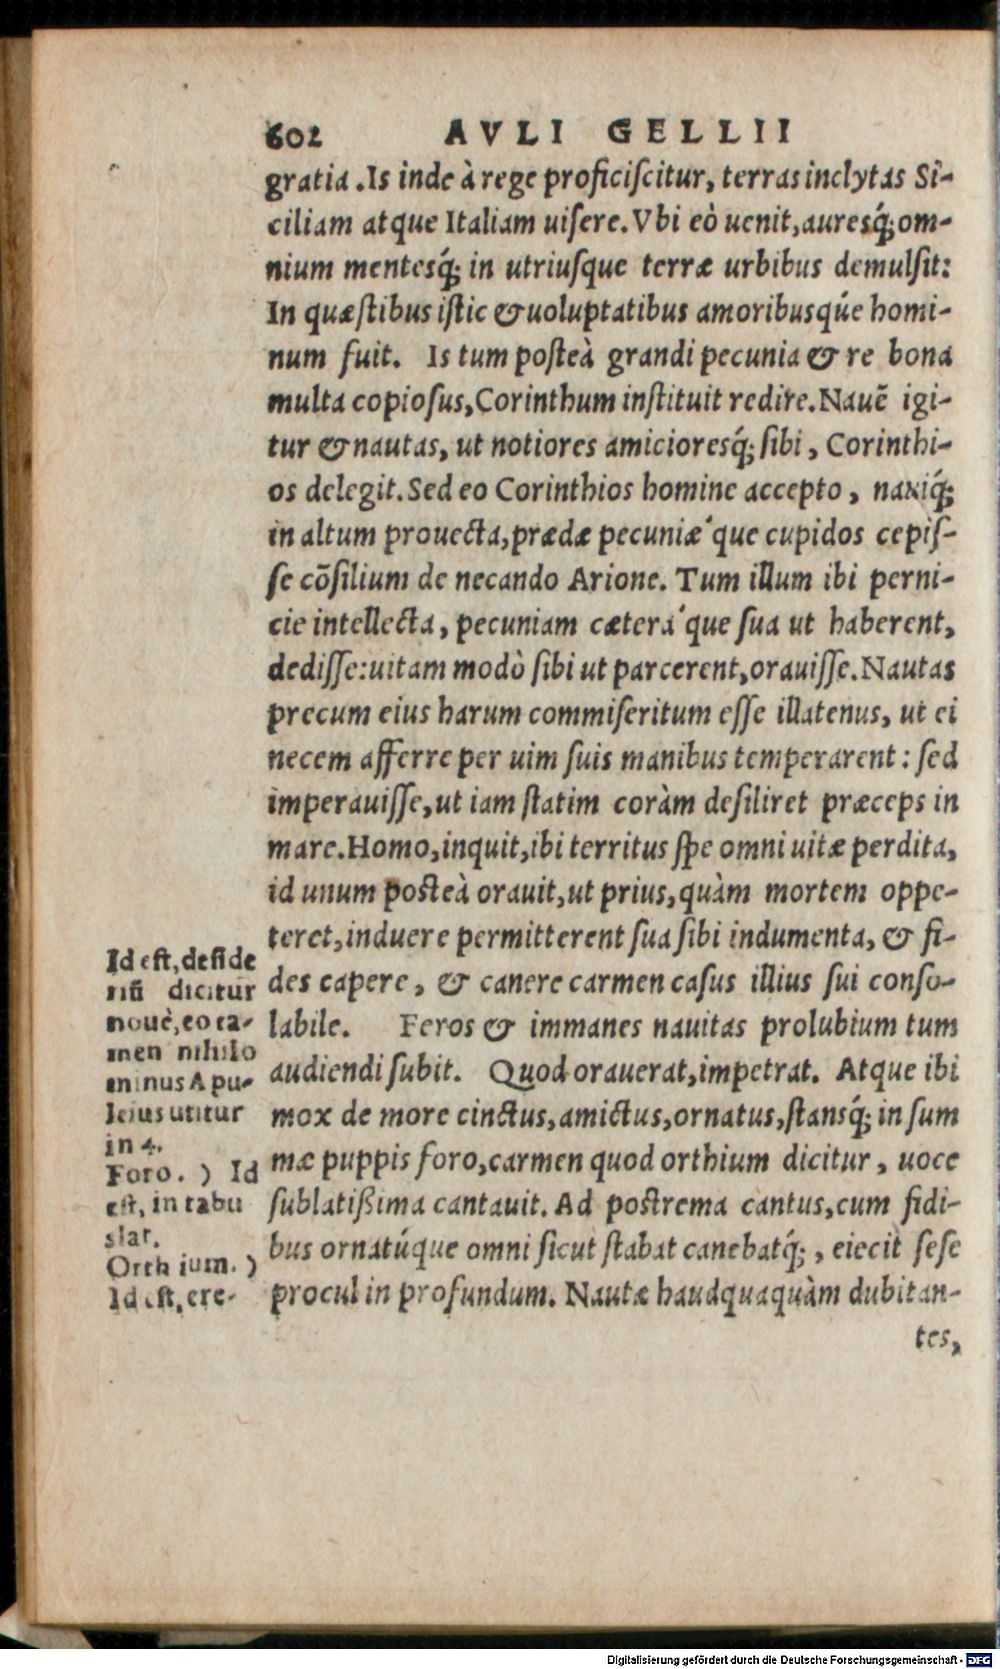 602 AVLI GELLII
gratia. Is inde à rege proficiſcitur, terras inclytas Si-
ciliam atque Italiam uiſere. Vbi eò uenit, auresq́; om-
nium mentesq́; in utriuſque terræ urbibus demulſit:
In quæſtibus iſtic & uoluptatibus amoribusqúe homi-
num fuit. Is tum poſteà grandi pecunia & re bona
multa copioſus, Corinthum inſtituit redire. Nauẽ igi-
tur & nautas, ut notiores amicioresq́; ſibi, Corinthi-
os delegit. Sed eo Corinthios homine accepto, nauiq́;
in altum prouecta, prædæ pecuniæ´que cupidos cepiſ-
ſe cõſilium de necando Arione. Tum illum ibi perni-
cie intellecta, pecuniam cætera´que ſua ut haberent,
dediſſe: uitam modò ſibi ut parcerent, orauiſſe. Nautas
precum eius harum commiſeritum eſſe illatenus, ut ei
necem afferre per uim ſuis manibus temperarent: ſed
imperauiſſe, ut iam ſtatim coràm deſiliret præceps in
mare. Homo, inquit, ibi territus ſpe omni uitæ perdita,
id unum poſteà orauit, ut prius, quàm mortem oppe-
teret, induere permitterent ſua ſibi indumenta, & fi-
des capere, & canere carmen caſus illius ſui conſo-
labile. Feros & immanes nauitas prolubium tum
audiendi ſubit. Quod orauerat, impetrat. Atque ibi
mox de more cinctus, amictus, ornatus, ſtansq́; in ſum
mæ puppis foro, carmen quod orthium dicitur, uoce
ſublatißima cantauit. Ad poſtrema cantus, cum fidi-
bus ornatúque omni ſicut ſtabat canebatq́;, eiecit ſeſe
procul in profundum. Nautæ haudquaquàm dubitan-
tes,
Id eſt, deſide
riũ dicitur
nouè, eo ta-
men nihilo
minus Apu-
leius utitur
in 4.
Foro. ) Id
eſt, in tabu
slat.
Orthium. )
Id eſt, ere-
Digitalisierung gefördert durch die Deutsche Forschungsgemeinschaft - DFG